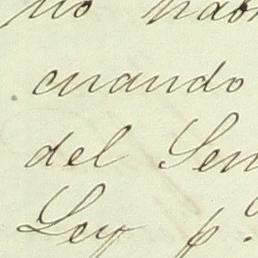 no
cuando
del Sen
Ley p.